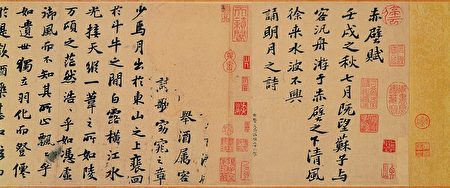 赤壁賦
壬戌之秋七月既望蘇子與
客泛舟游于赤壁之下清風
徐來水波不興
誦明月之詩
舉酒屬客
歌窈窕之章
少焉月出於東山之上裵回
於斗牛之間白露橫江水
光接天縱一葦之所如陵
萬頃之茫然浩浩乎如馮虛
御風而不知其所止飄飄乎
如遺世獨立羽化而登僊
於是飲酒樂甚扣舷而